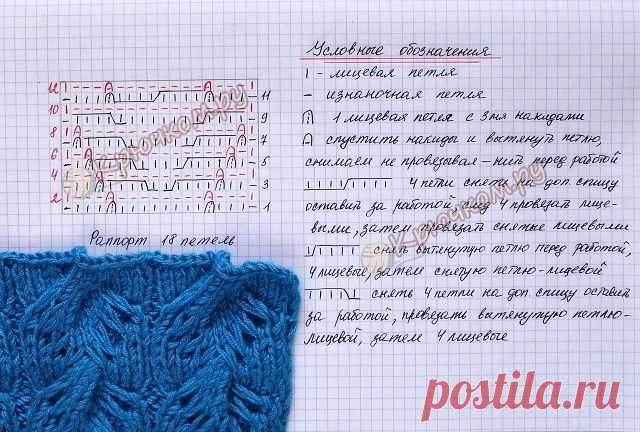 Условные обозначения
| - лицевая петля
– - изнаночная петля
1 лицевая петля с 3мя накидами
A спустить накиды и вытянуть петлю,
снимаем не провязывая - нить перед работой
4 петли снять на доп. спицу
оставить за работой, след 4 провязать лице-
выми, затем провязать снятые лицевыми
снять вытянутую петлю перед работой,
4 лицевые, затем снятую петлю - лицевой
снять 4 петли на доп. спицу оставит
за работой, провязать вытянутую петлю-
лицевой, затем 4 лицевые
12
11
10
9
8
7
6
5
4
3
2
1
Раппорт 18 петель
Крючком.ру
Крючком.ру
postila.ru